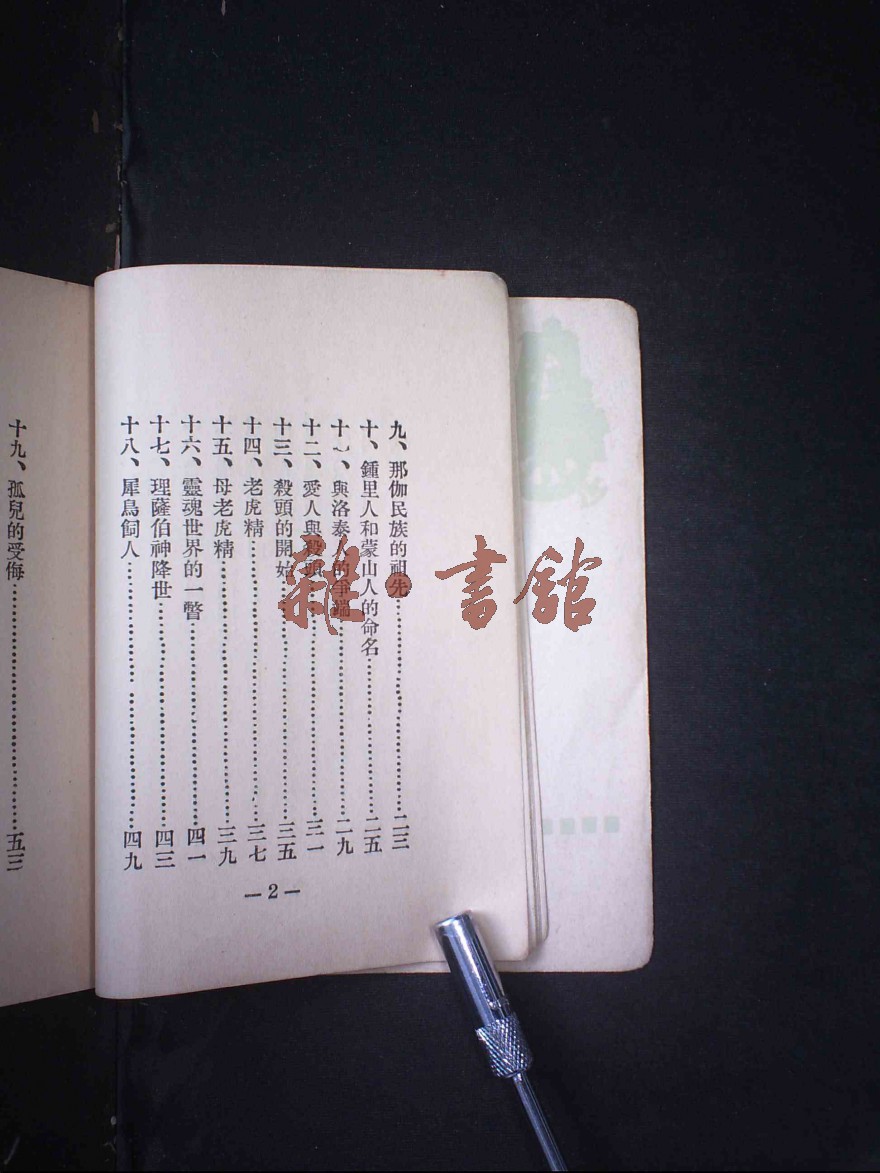 九、那伽民族的祖先……………………二三
十、鍾里人和蒙山人的命名……………………二五
十一、與洛泰人的爭端……………………二九
十二、愛人與殺頭……………………三一
十三、殺頭的開始……………………三五
十四、老虎精……………………三七
十五、母老虎精……………………三九
十六、靈魂世界的一瞥……………………四一
十七、理薩伯神降世……………………四三
十八、犀鳥飼人……………………四九
—2—
十九、孤兒的受侮……………………五三
雜·書館